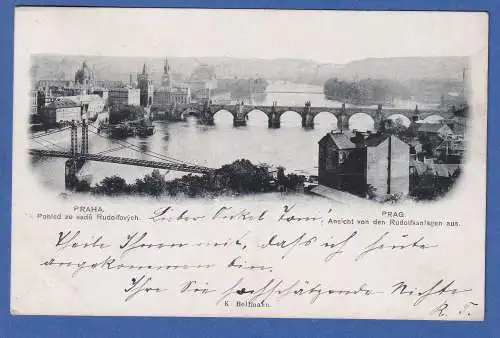 PRAHA.
Pohled ze sadů Rudolfových.
PRAG.
Ansicht von den Rudolfsanlagen aus.
Lieber Onkel Toni!
Theile Ihnen mit, dass ich heute
angekommen bin.
Ihre Sie hochschätzende Nichte
R. T.
K. Bellmann.